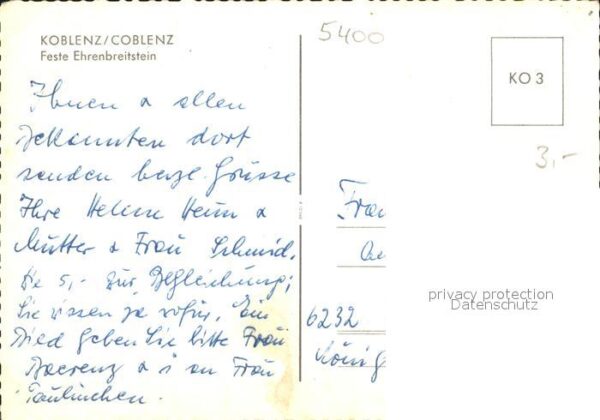 KOBLENZ/COBLENZ
Feste Ehrenbreitstein
5400
KO 3
3,-
Ihnen & allen
Bekannten dort
senden herzl. Grüsse
Ihre Helene Heim &
Mutter & Frau Schmid.
5,- zur Begleichung;
Sie wissen ja wofür. Ein
geben Sie bitte Frau
& 1 an Frau
Frau
6232
König
privacy protection
Datenschutz